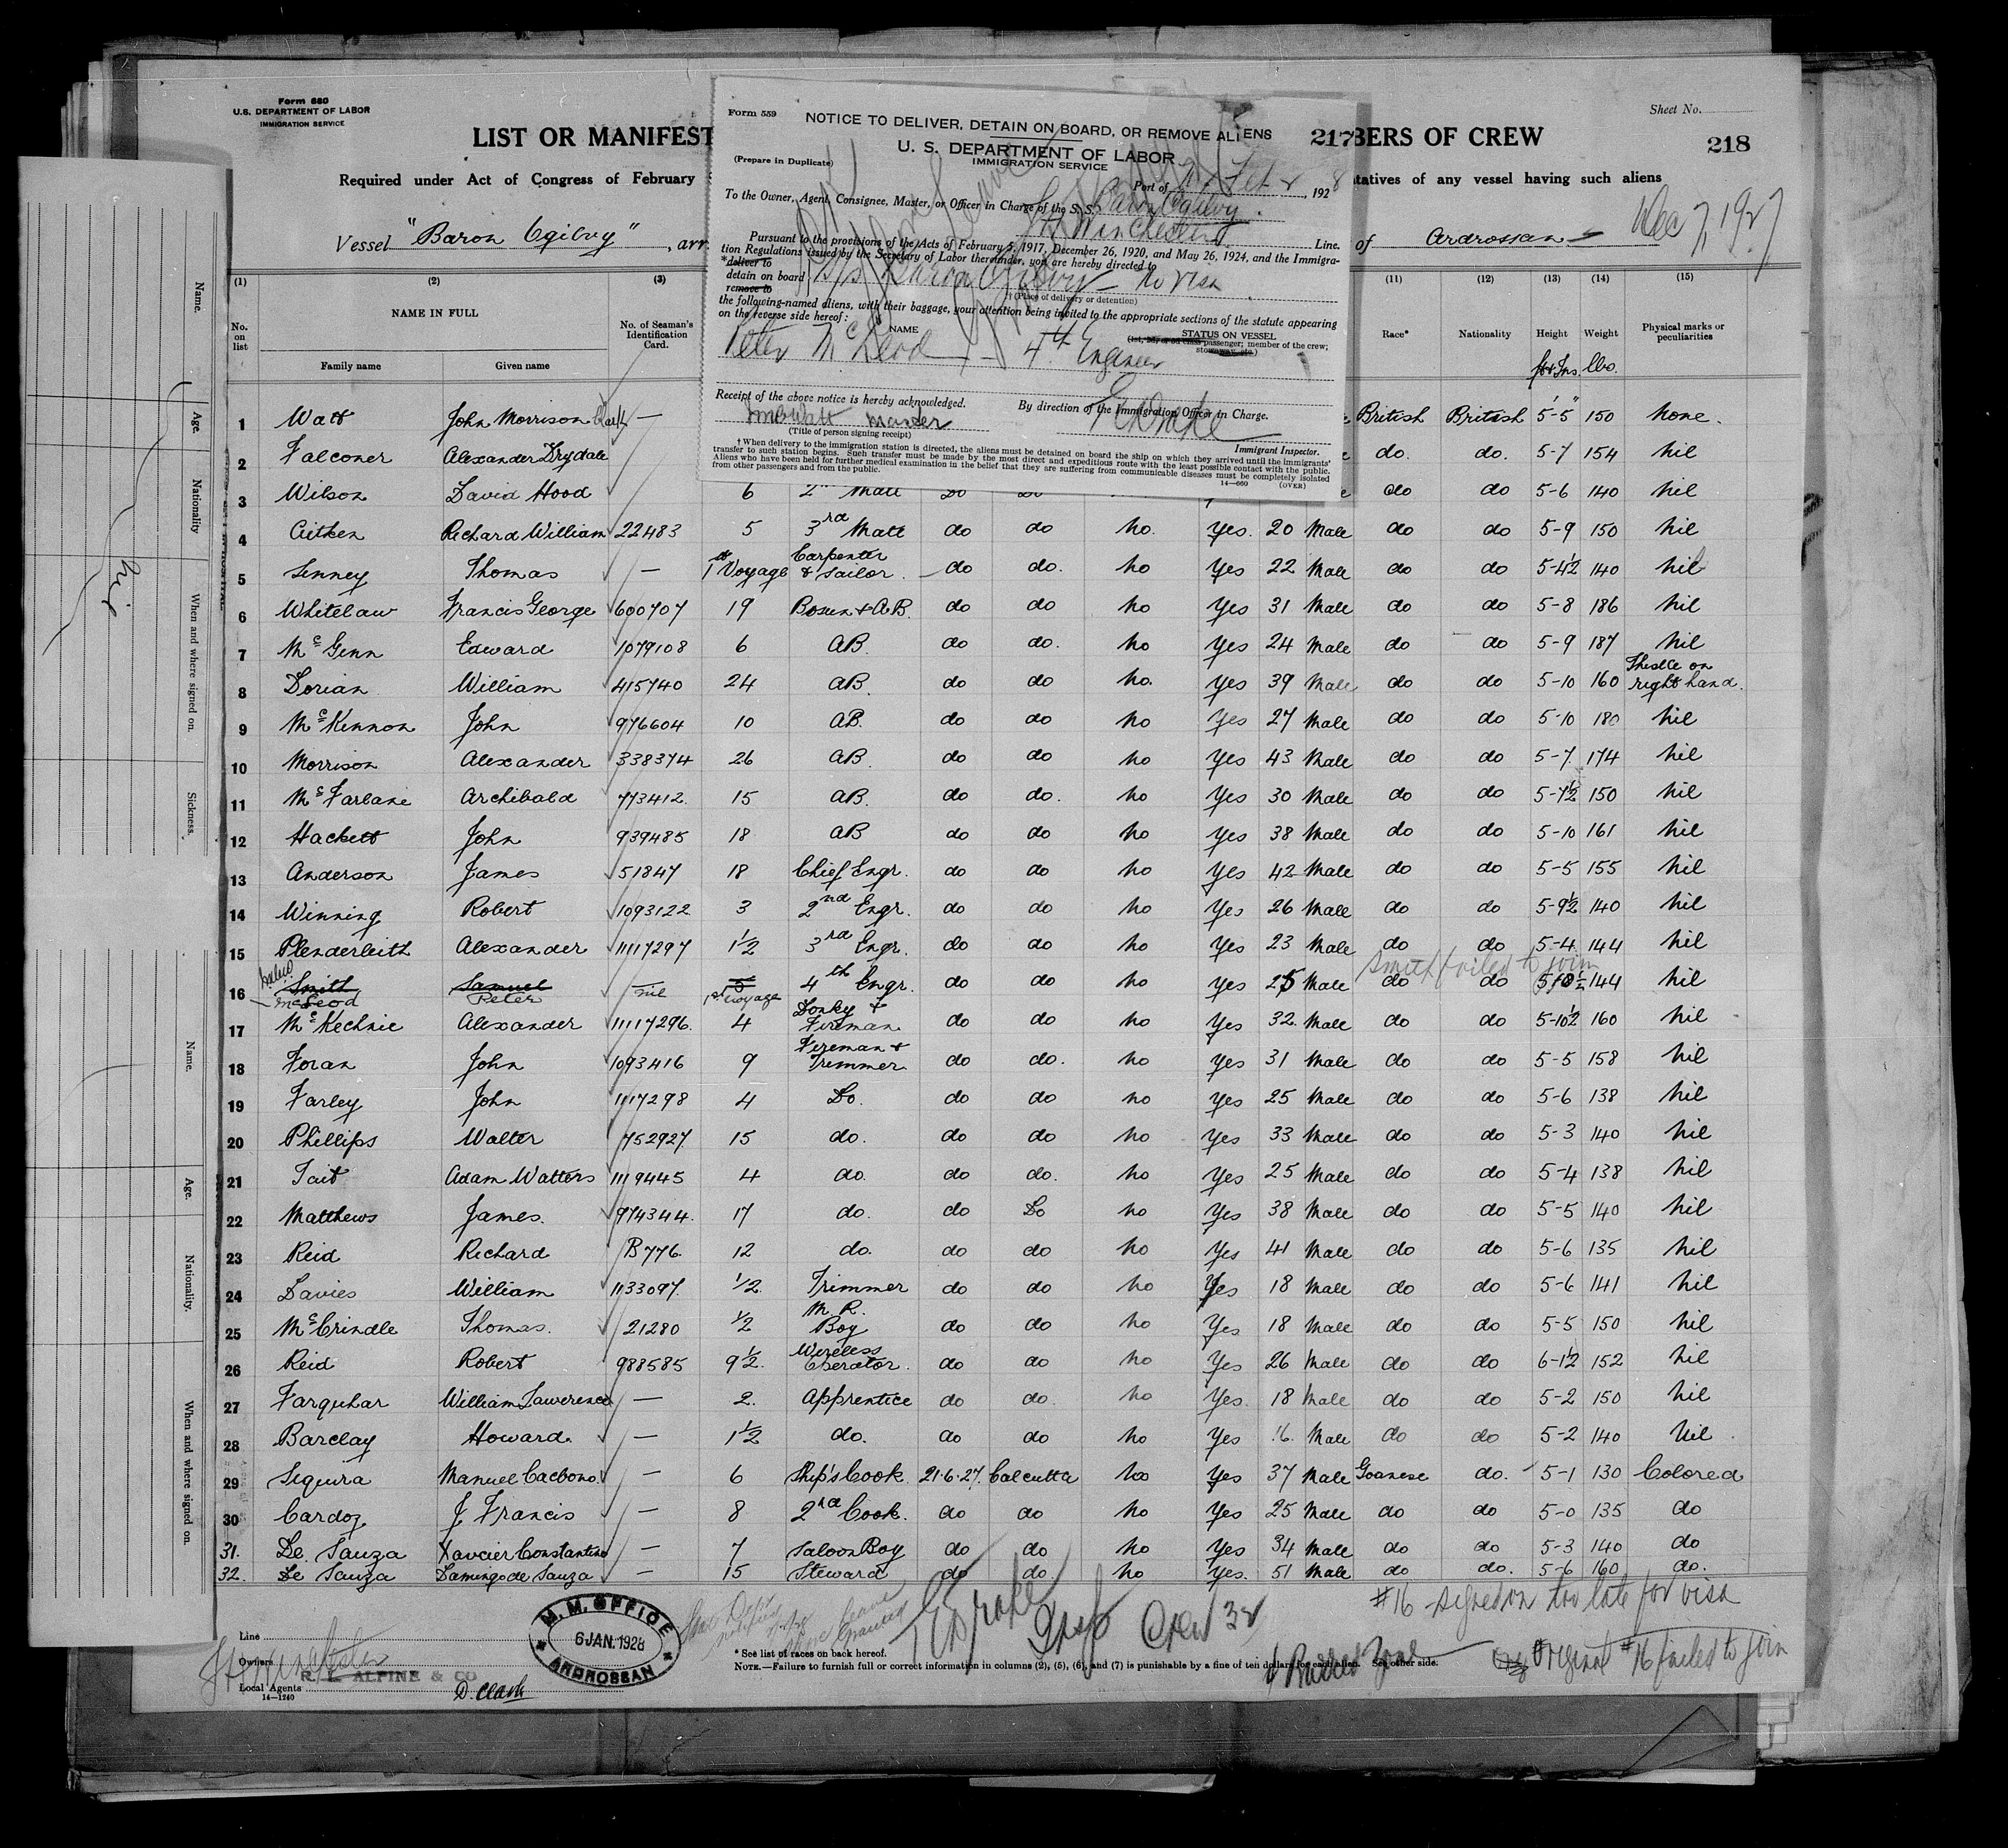 Form 680
U. S. DEPARTMENT OF LABOR
IMMIGRATION SERVICE
Sheet No.
LIST OR MANIFEST
217
BERS OF CREW
218
Required under Act of Congress of February
tatives of any vessel having such aliens
Vessel "Baron Ogilvy", arr
of Ardrossan Dec 7, 1927
Form 559
NOTICE TO DELIVER, DETAIN ON BOARD, OR REMOVE ALIENS
U. S. DEPARTMENT OF LABOR
IMMIGRATION SERVICE
(Prepare in Duplicate)
Port of , 1928
To the Owner, Agent, Consignee, Master, or Officer in Charge of the S. S. Baron Ogilvy.
JH Winchester Line.
Pursuant to the provisions of the Acts of February 5, 1917, December 26, 1920, and May 26, 1924, and the Immigra-
tion Regulations issued by the Secretary of Labor thereunder, you are hereby directed to
*deliver to
detain on board S/S Baron Ogilvy – no visa
remove to
† (Place of delivery or detention)
the following-named aliens, with their baggage, your attention being invited to the appropriate sections of the statute appearing
on the reverse side hereof:
NAME STATUS ON VESSEL
(1st, 2d, or 3d class passenger; member of the crew;
stowaway, etc.)
Peter McLeod – 4th Engineer
Receipt of the above notice is hereby acknowledged. By direction of the Immigration Officer in Charge.
JMCWatt Master
(Title of person signing receipt)
Immigrant Inspector.
† When delivery to the immigration station is directed, the aliens must be detained on board the ship on which they arrived until the immigrants'
transfer to such station begins. Such transfer must be made by the most direct and expeditious route with the least possible contact with the public.
Aliens who have been held for further medical examination in the belief that they are suffering from communicable diseases must be completely isolated
from other passengers and from the public.
14—660 (OVER)
(1) (2) (3) (11) (12) (13) (14) (15)
No. on list
NAME IN FULL
Family name Given name
No. of Seaman's Identification Card.
Race* Nationality Height Weight Physical marks or peculiarities
ft & Ins. lbs.
1 Watt John Morrison — British British 5-5 150 None.
2 Falconer Alexander Drydale do. do. 5-7 154 nil
3 Wilson David Hood 6 2nd Mate Do Do do do 5-6 140 nil
4 Aitken Richard William 22483 5 3rd Mate do do no. Yes. 20 Male do do 5-9 150 nil
5 Sinney Thomas — 1st Voyage Carpenter & Sailor do do. no Yes 22 Male do do 5-4½ 140 nil
6 Whitelaw Francis George 600707 19 Bosun & AB. do do no Yes 31 Male do do 5-8 186 nil
7 McGinn Edward 1079108 6 AB. do do. no Yes 24 Male do do 5-9 187 nil
8 Dorian William 415740 24 AB. do do no. Yes 39 Male do do 5-10 160 Thistle on right hand.
9 McKinnon John 976604 10 AB. do do no Yes 27 Male do do 5-10 180 nil
10 Morrison Alexander 338374 26 AB. do do no Yes 43 Male do do 5-7 174 nil
11 McFarlane Archibald 773412. 15 AB. do do. no Yes 30 Male do do 5-7½ 150 nil
12 Hackett John 939485 18 AB do do no Yes 38 Male do do 5-10 161 nil
13 Anderson James 51847 18 Chief Engr. do do no Yes 42 Male do do 5-5 155 nil
14 Winning Robert 1093122 3 2nd Engr. do do no Yes 26 Male do do 5-9½ 140 nil
15 Plenderleith Alexander 1117297 1½ 3rd Engr. do do no Yes 23 Male do do 5-4 144 nil
Smith failed to join
16 Smith Samuel nil 4th Engr. do do no Yes 25 Male do do 144 nil
McLeod Peter 1st voyage
17 McKechnie Alexander 1117296. 4 Donky & Fireman do do no Yes 32. Male do do 5-10½ 160 nil
18 Foran John 1093416 9 Fireman & Trimmer do do. no Yes 31 Male do do 5-5 158 nil
19 Farley John 1117298 4 Do. do do no Yes 25 Male do do 5-6 138 nil
20 Phillips Walter 752927 15 do. do do no Yes 33 Male do do 5-3 140 nil
21 Tait Adam Watters 1119445 4 do. do do. no Yes 25 Male do do 5-4 138 nil
22 Matthews James. 974344. 17 do. do Do no Yes 38 Male do do 5-5 140 nil
23 Reid Richard B776. 12 do. do do no Yes 41 Male do do 5-6 135 nil
24 Davies William 1133097. ½ Trimmer do do no Yes 18 Male do do 5-6 141 nil
25 McCrindle Thomas. 21280 ½ M. R. Boy do do no Yes 18 Male do do 5-5 150 nil
26 Reid Robert 988585 9½. Wireless Operator. do do no Yes 26 Male do do 6-1½ 152 nil
27 Farquhar William Lawerence — 2. Apprentice do do. no Yes. 18 Male do do 5-2 150 nil
28 Barclay Howard. — 1½ do. do do no Yes 16. Male do do 5-2 140 Nil
29 Siquira Manuel Caetono. — 6 Ship's Cook. 21.6.27. Calcutta no Yes 37 Male Goanese do. 5-1 130 Colored
30 Cardoz J Francis — 8 2nd Cook. do do no Yes 25 Male do do 5-0 135 do
31. De Sauza Xavcier Constantino — 7 Saloon Boy do do no Yes 34 Male do do 5-3 140 do
32. De Sauza Damingo de Sauza — 15 Steward do do. no Yes. 51 Male do do. 5-6 160 do.
#16 signed on too late for visa
Crew 32
Original #16 failed to join
Line
Owners
JH Winchester
R. L. ALPINE & CO
Local Agents
D. Clark
14—1240
M. M. OFFICE
6 JAN. 1928
ARDROSSAN
* See list of races on back hereof.
NOTE.—Failure to furnish full or correct information in columns (2), (5), (6), and (7) is punishable by a fine of ten dollars for each alien. See other side.
Name.
Age.
Nationality
When and where signed on.
Sickness.
Nil
Name.
Age.
Nationality.
When and where signed on.